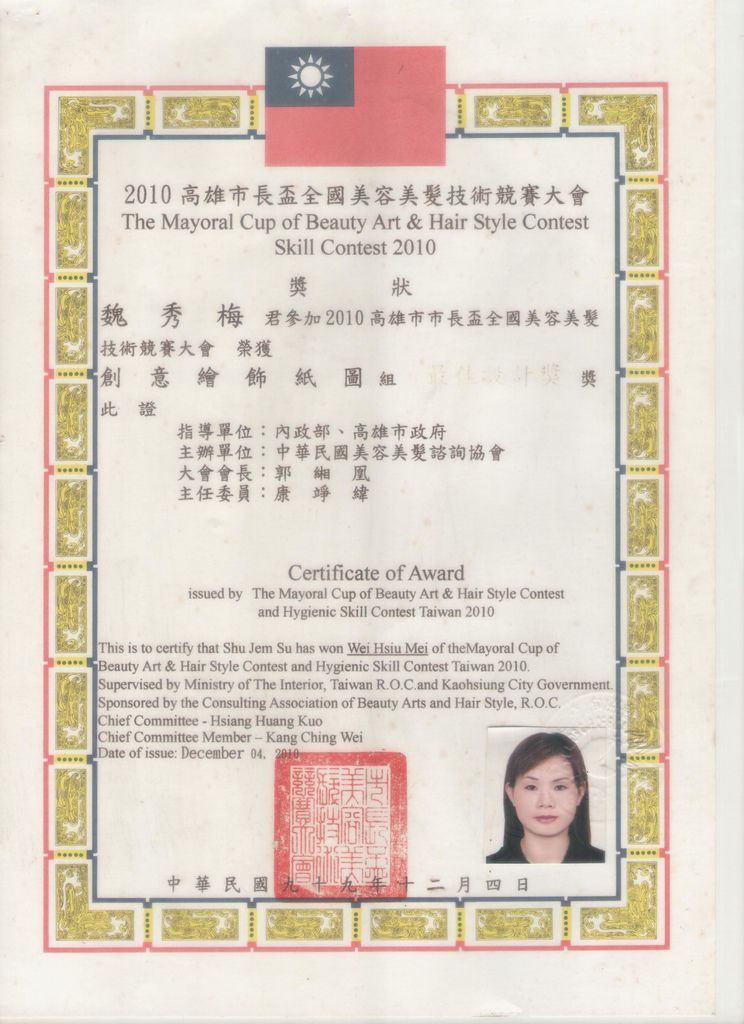 2010 高雄市長盃全國美容美髮技術競賽大會
The Mayoral Cup of Beauty Art & Hair Style Contest
Skill Contest 2010
獎 狀
魏 秀 梅 君參加2010高雄市市長盃全國美容美髮
技術競賽大會 榮獲
創 意 繪 飾 紙 圖 組 最佳設計獎 獎
此 證
指導單位：內政部、高雄市政府
主辦單位：中華民國美容美髮諮詢協會
大會會長：郭 緗 凰
主任委員：康 竫 緯
Certificate of Award
issued by The Mayoral Cup of Beauty Art & Hair Style Contest
and Hygienic Skill Contest Taiwan 2010
This is to certify that Shu Jem Su has won Wei Hsiu Mei of theMayoral Cup of
Beauty Art & Hair Style Contest and Hygienic Skill Contest Taiwan 2010.
Supervised by Ministry of The Interior, Taiwan R.O.C.and Kaohsiung City Government.
Sponsored by the Consulting Association of Beauty Arts and Hair Style, R.O.C.
Chief Committee - Hsiang Huang Kuo
Chief Committee Member – Kang Ching Wei
Date of issue: December 04, 2010
中華民國九十九年十二月四日